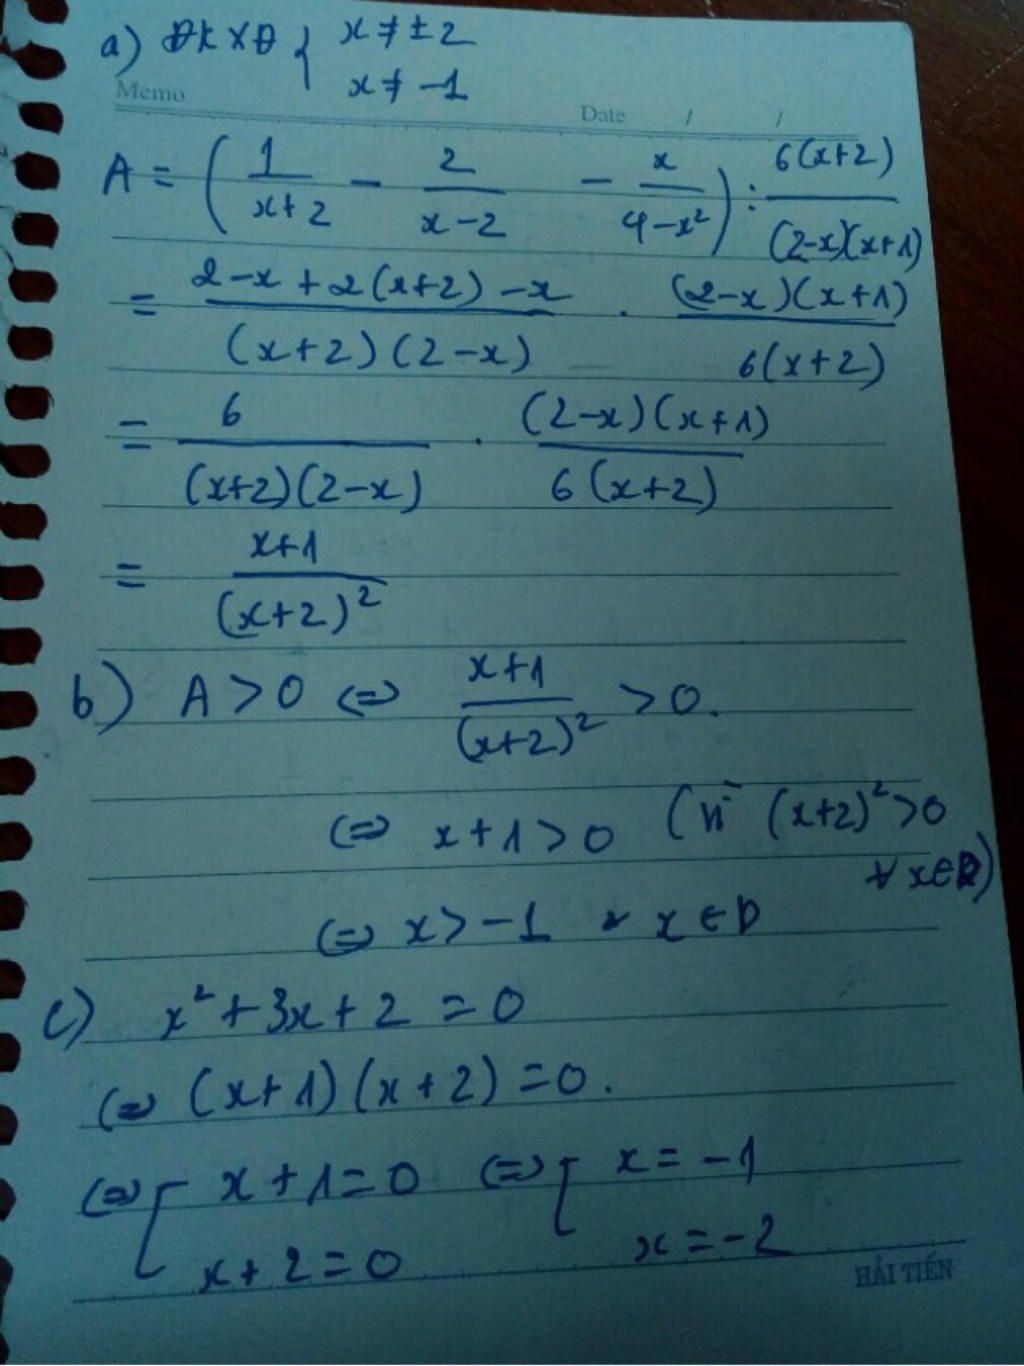 a) ĐKXĐ { x ≠ ±2
x ≠ -1
Memo
Date / /
A = ( 1/(x+2) - 2/(x-2) - x/(4-x²) ) : 6(x+2)/((2-x)(x+1))
= (2-x+2(x+2)-x)/((x+2)(2-x)) . ((2-x)(x+1))/(6(x+2))
= 6/((x+2)(2-x)) . ((2-x)(x+1))/(6(x+2))
= (x+1)/(x+2)²
b) A > 0 ⇔ (x+1)/(x+2)² > 0.
⇔ x+1 > 0 (vì (x+2)² > 0
∀ x ∈ D)
⇔ x > -1 x ∈ D
c) x² + 3x + 2 = 0
⇔ (x+1)(x+2) = 0.
⇔ [ x+1 = 0 ⇔ [ x = -1
x+2 = 0 x = -2
HẢI TIẾN